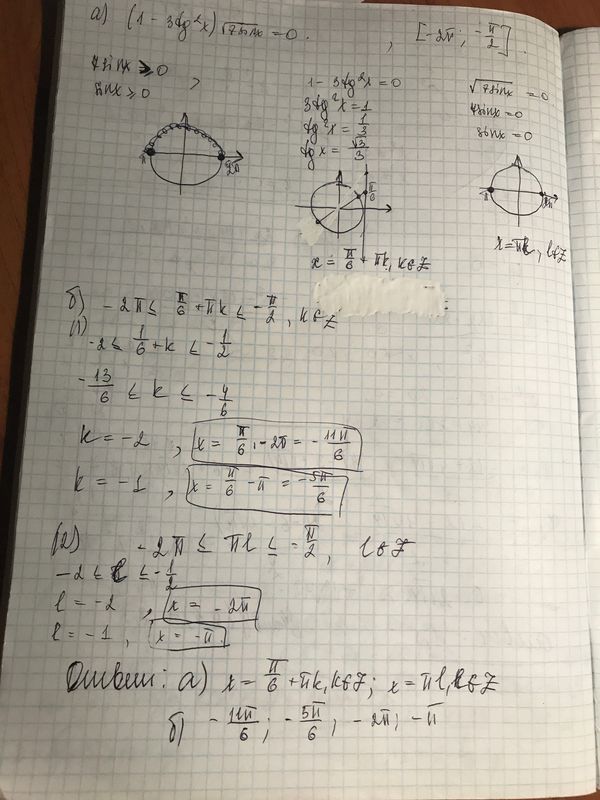 а) (1 - 3tg²x)√7sinx = 0. , [-2π; -π/2].
7sinx ≥ 0
sinx ≥ 0 ,
π 2π
1 - 3tg²x = 0
3tg²x = 1
tg²x = 1/3
tgx = √3/3
π/6
x = π/6 + πk, k∈Z
√7sinx = 0
7sinx = 0
sinx = 0
π 2π
x = πl, l∈Z
б) -2π ≤ π/6 + πk ≤ -π/2, k∈Z
(1)
-2 ≤ 1/6 + k ≤ -1/2
-13/6 ≤ k ≤ -4/6
k = -2 , x = π/6 - 2π = -11π/6
k = -1 , x = π/6 - π = -5π/6
(2) -2π ≤ πl ≤ -π/2, l∈Z
-2 ≤ l ≤ -1/2
l = -2 , x = -2π
l = -1 , x = -π
Ответ: а) x = π/6 + πk, k∈Z; x = πl, l∈Z
б) -11π/6; -5π/6; -2π; -π